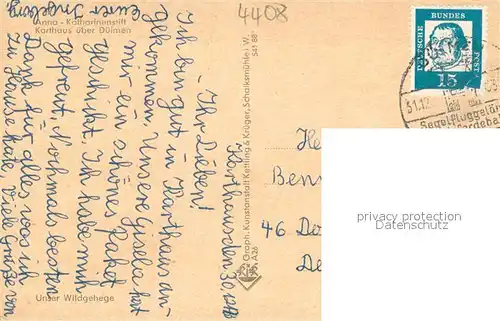 4408
Anna - Katharinenstift
Karthaus über Dülmen
DEUTSCHE BUNDESPOST
15
31.12.
Segelfluggelän
Karthaus, den 30.
- Ihr Lieben!
Ich bin gut in Karthaus an-
gekommen. Unsere Gisela hat
mir ein schönes Paket
geschickt. Ich habe mich
gefreut. Nochmals besten
Dank für alles was ich
zu Hause hatte. Viele Grüße von
eurer Ingeborg.
Graph. Kunstanstalt Kettling & Krüger, Schalksmühle i. W.
541 88
A 26
He
Ben
46 Do
De
privacy protection
Privatsphärenschutz
Unser Wildgehege